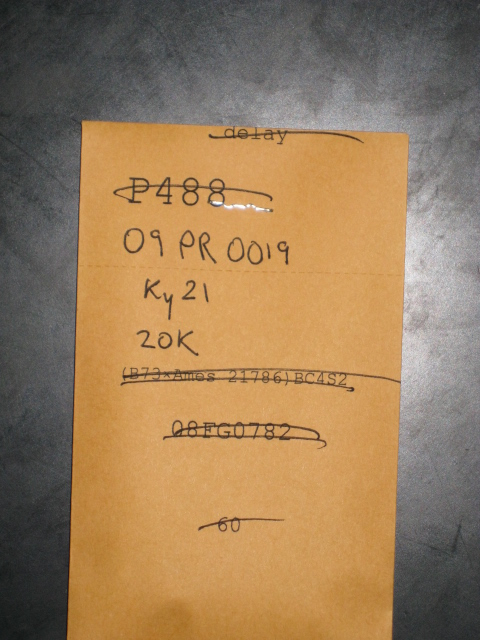 delay
P488
09 PR 0019
Ky 21
20K
(B73×Ames 21786)BC4S2
08FG0782
60